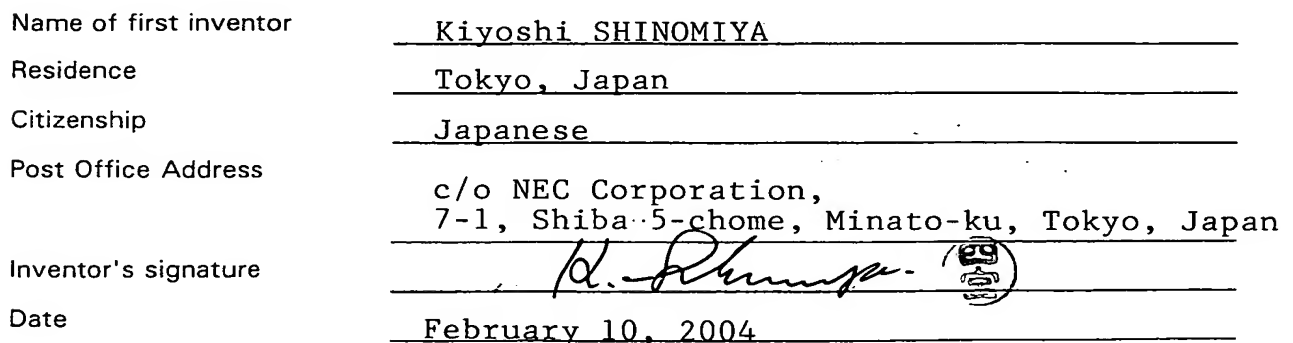 Name of first inventor Kiyoshi SHINOMIYA
Residence Tokyo, Japan
Citizenship Japanese
Post Office Address c/o NEC Corporation,
7-1, Shiba 5-chome, Minato-ku, Tokyo, Japan
Inventor's signature K. Shinomiya 四宮
Date February 10, 2004